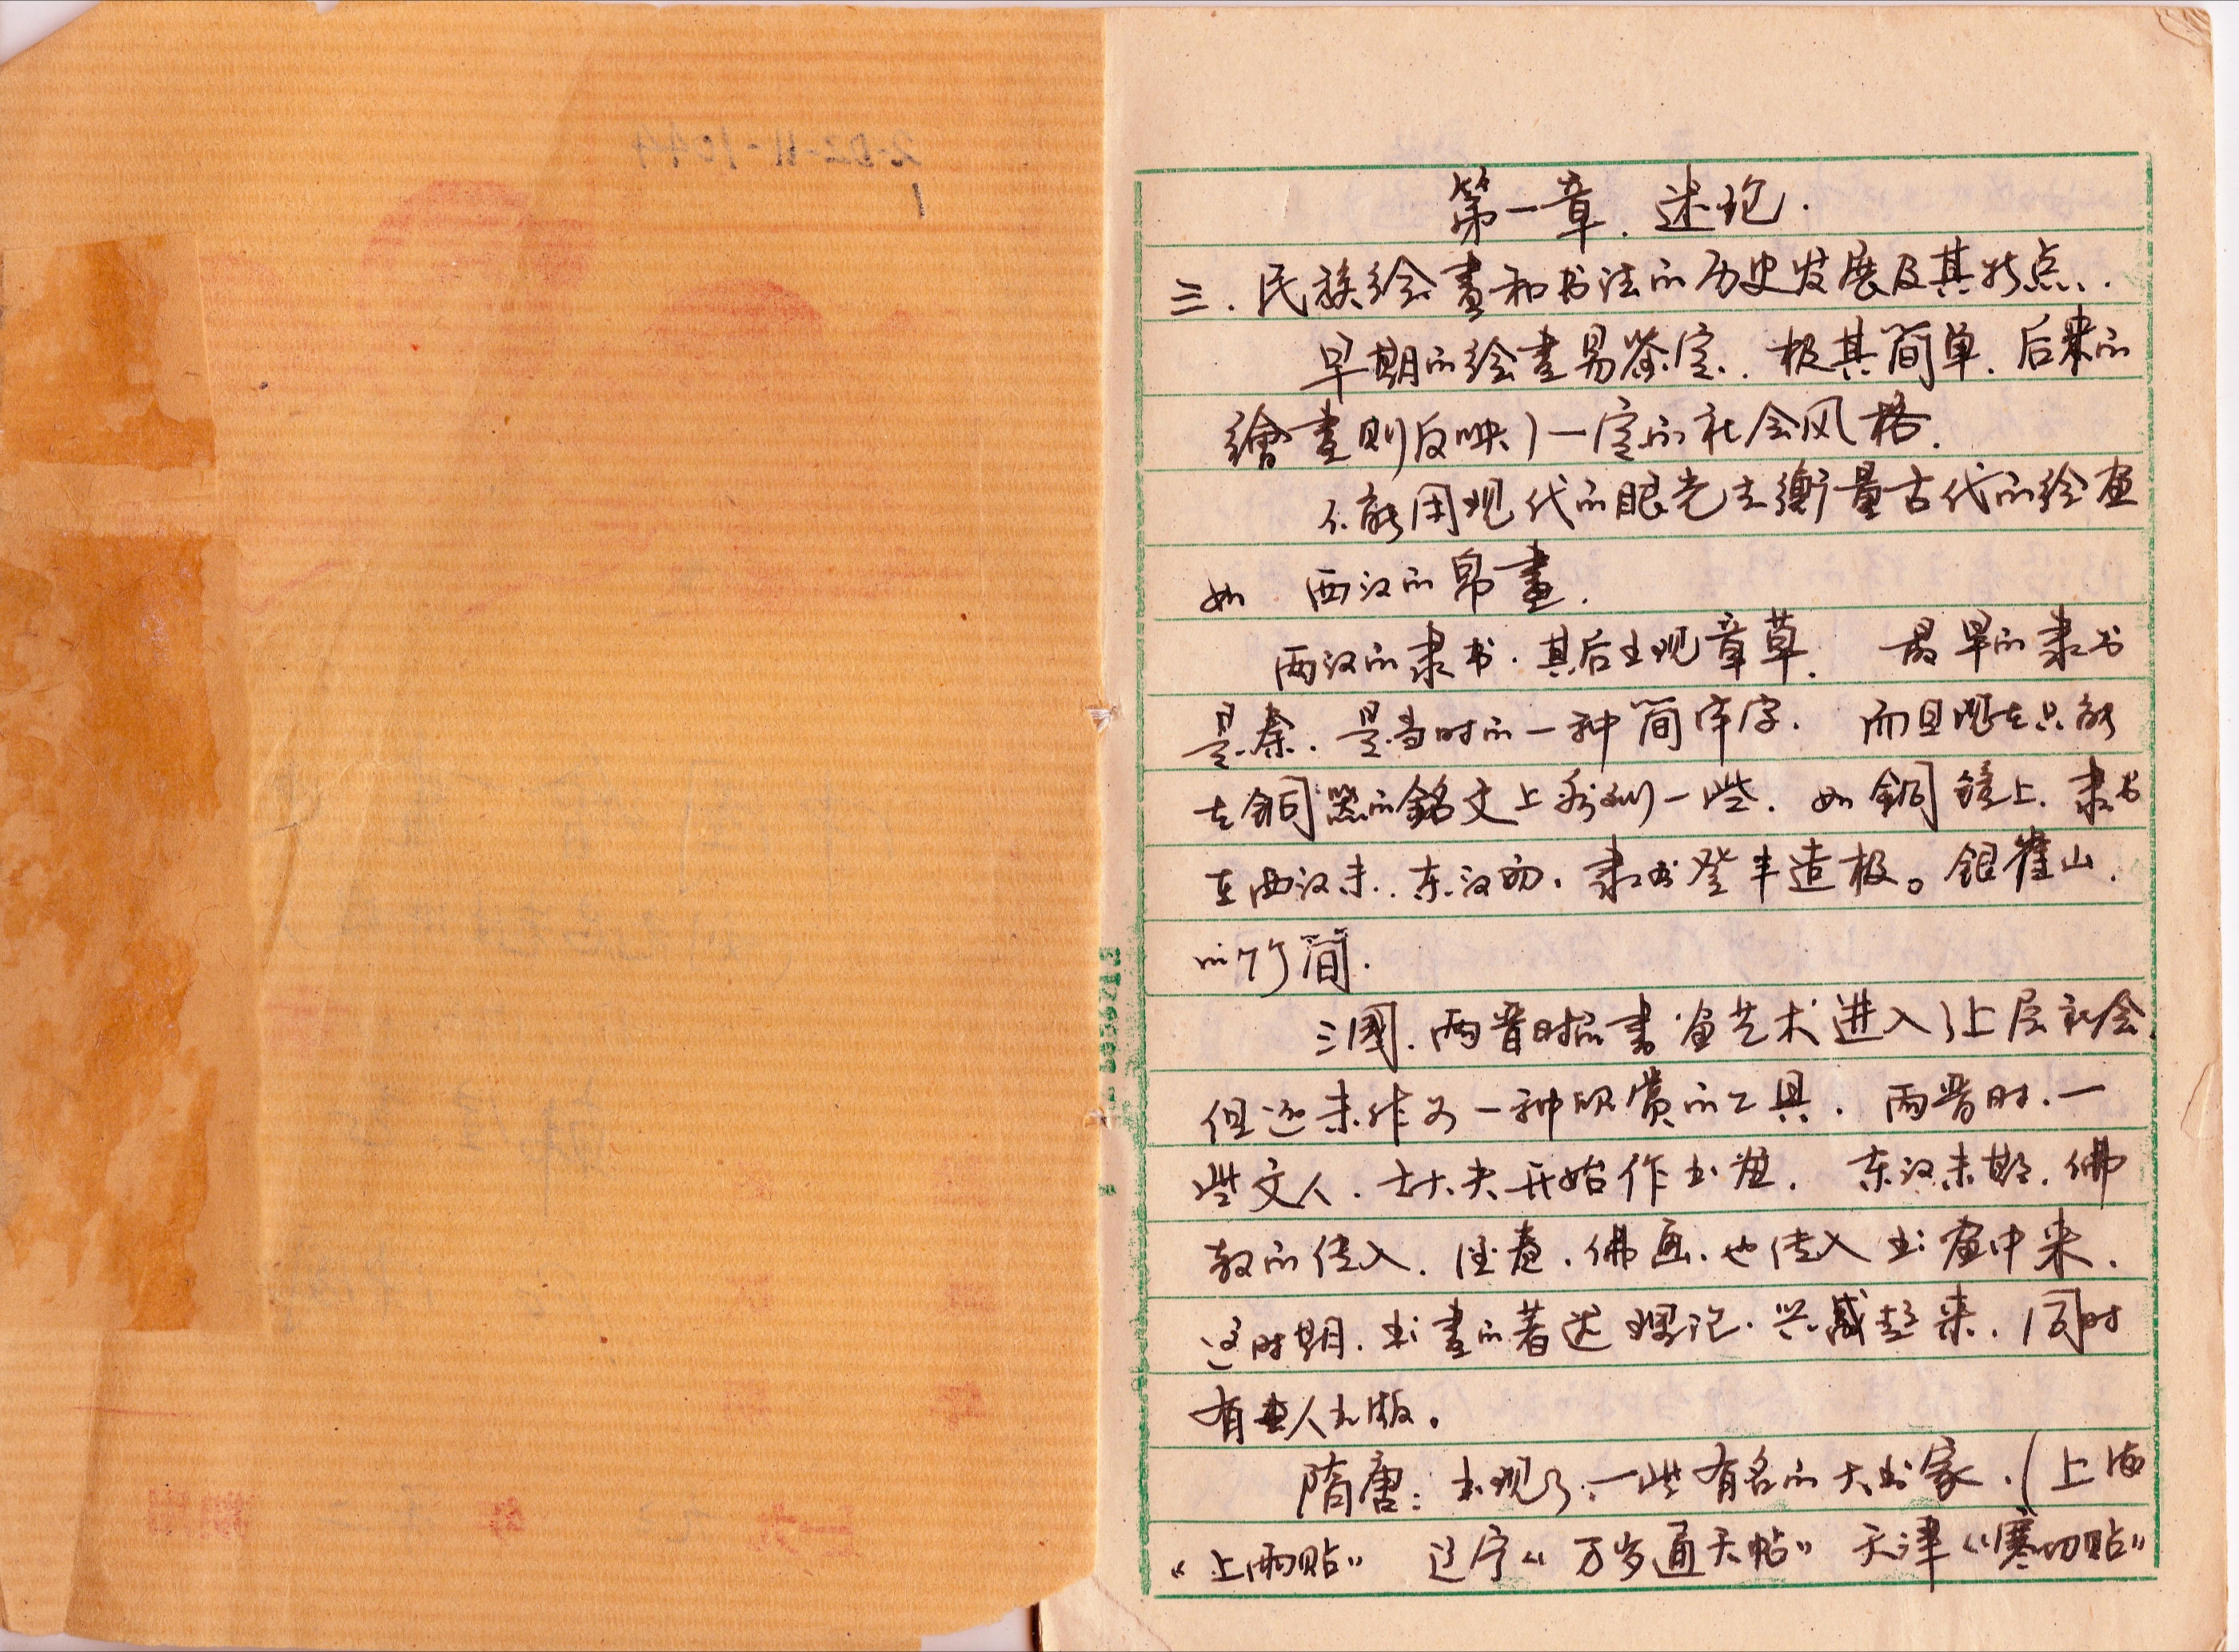 第一章. 述论.
三. 民族绘畫和书法的历史发展及其特点.
早期的绘畫易鉴定. 极其简单. 后来的
繪畫则反映了一定的社会风格.
不能用现代的眼光去衡量古代的绘画
如 西汉的帛畫.
两汉的隶书. 其后出现章草. 最早的隶书
是秦. 是当时的一种简体字. 而且现在只能
在銅器的銘文上看到一些. 如銅鏡上. 隶书
在西汉末. 东汉初. 隶书登丰造极。銀雀山.
的竹简.
三國. 两晋时的書画艺术进入了上层社会.
但还未作为一种欣赏的工具. 两晋时. 一
些文人. 士大夫开始作书画. 东汉末期. 佛
教的传入. 佛画. 也传入书画中来.
这时期. 书畫的著述理论. 兴盛起来. 同时
有出版。
隋唐: 出现了一些有名的大书家. (上海
《上雨贴》 辽宁《万岁通天帖》 天津《寒切贴》